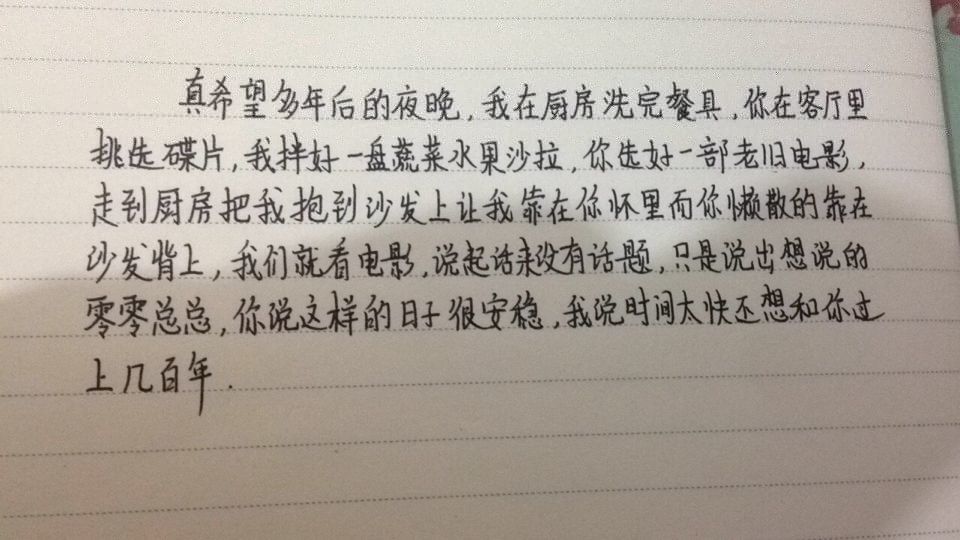 真希望多年后的夜晚，我在厨房洗完餐具，你在客厅里
挑选碟片，我拌好一盘蔬菜水果沙拉，你选好一部老旧电影，
走到厨房把我抱到沙发上让我靠在你怀里而你懒散的靠在
沙发背上，我们就看电影，说起话来没有话题，只是说出想说的
零零总总，你说这样的日子很安稳，我说时间太快还想和你过
上几百年．